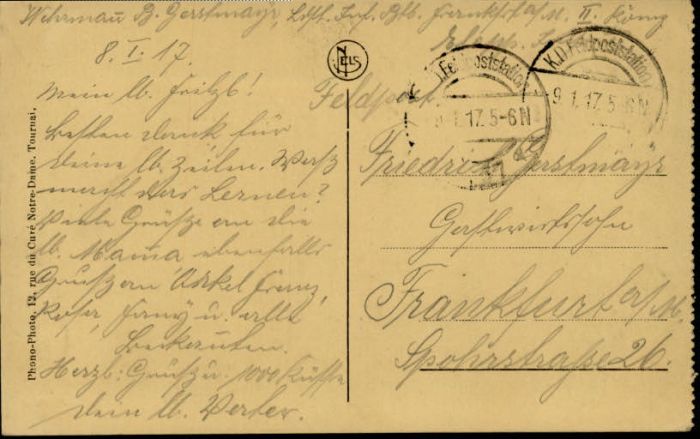 Wehrmann B. Gerstmayr, Ldst. Inf. Btl. Frankfurt a/M. II. Komp
8. I. 17.
NELS
Mein lb. Fritzl!
Besten Dank für
Deine lb. Zeilen. Was
macht das Lernen?
Viele Grüsse an die
lb. Mama ebenfalls
Grüsse an Onkel Franz,
Rosa, Fany u. alle
Bekannten.
Herzl. Grüsse u. 1000 Küsse
Dein lb. Vater.
Feldpost.
K.D. Feldpoststation
9.1.17. 5-6 N
K.D. Feldpoststation
9.1.17. 5-6 N
Friedrich Gerstmayr
Gastwirtssohn
Frankfurt a/M.
Spohrstraße 26.
Phono-Photo, 12, rue du Curé Notre-Dame, Tournai.